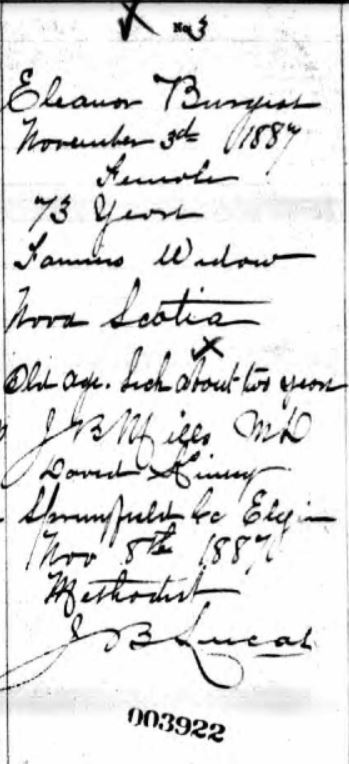 No 3
Eleanor Burgess
November 3d 1887
Female
73 Years
Farmers Widow
Nova Scotia
Old age. Sick about two years
J B Mills MD
David Kinney
Springfield Co Elgin
Nov 8th 1887
Methodist
J B Lucas
003922